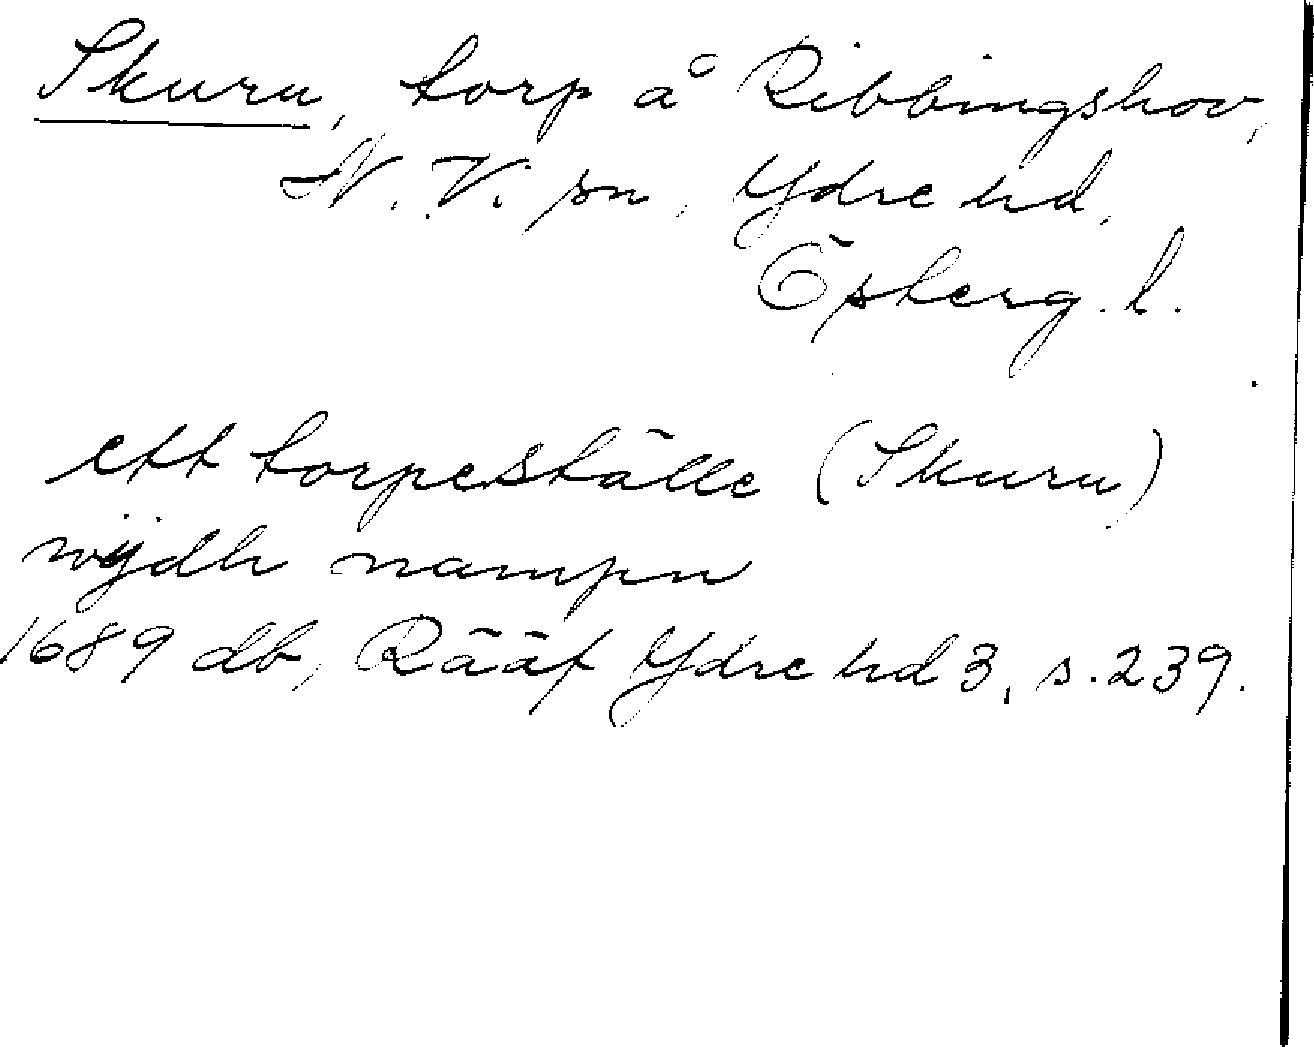 Skuru, torp å Ribbingshov,
N. V. sn, Ydre hd,
Österg. l.
ett torpeställe (Skuru)
wijdh nampn
1689 db, Rääf Ydre hd 3, s. 239.